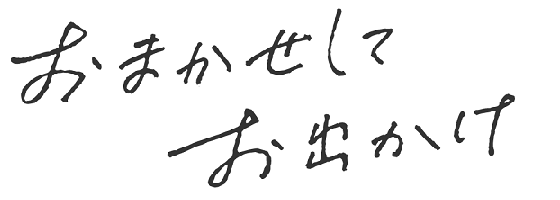 おまかせして
お出かけ